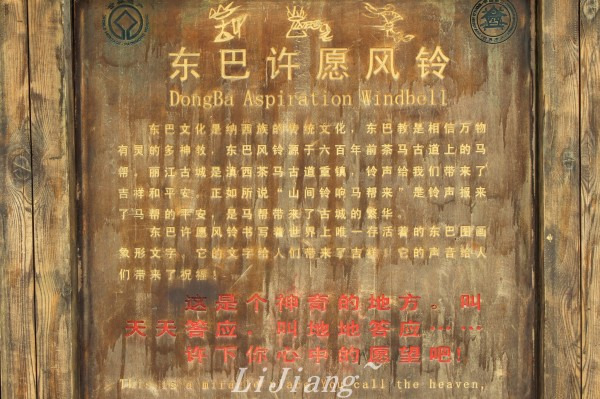 东巴许愿风铃
DongBa Aspiration Windbell
东巴文化是纳西族的传统文化，东巴教是相信万物
有灵的多神教，东巴风铃源于六百年前茶马古道上的马
帮，丽江古城是滇西茶马古道重镇，铃声给我们带来了
吉祥和平安。正如所说“山间铃响马帮来”是铃声报来
了马帮的平安，是马帮带来了古城的繁华。
东巴许愿风铃书写着世界上唯一存活着的东巴图画
象形文字，它的文字给人们带来了吉祥！它的声音给人
们带来了祝福！
这是个神奇的地方。叫
天天答应，叫地地答应……
许下你心中的愿望吧！
This is a call the heaven,
LiJiang~